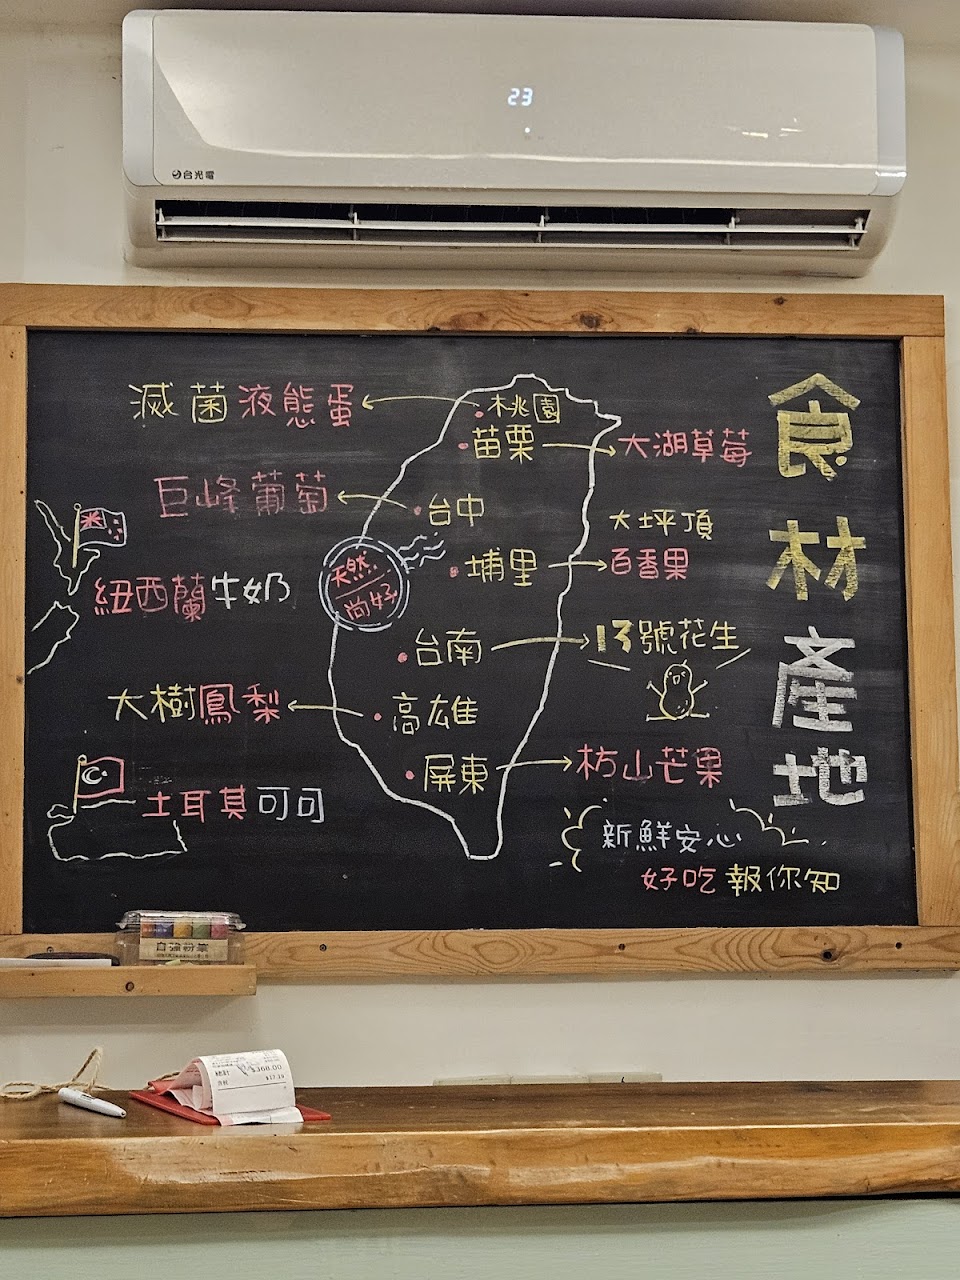 23
台光電
食材產地
滅菌液態蛋
桃園
苗栗
大湖草莓
巨峰葡萄
台中
大坪頂
百香果
埔里
天然
尚好
紐西蘭牛奶
台南
13號花生
大樹鳳梨
高雄
屏東
枋山芒果
土耳其可可
新鮮安心
好吃報你知
自強粉筆
$368.00